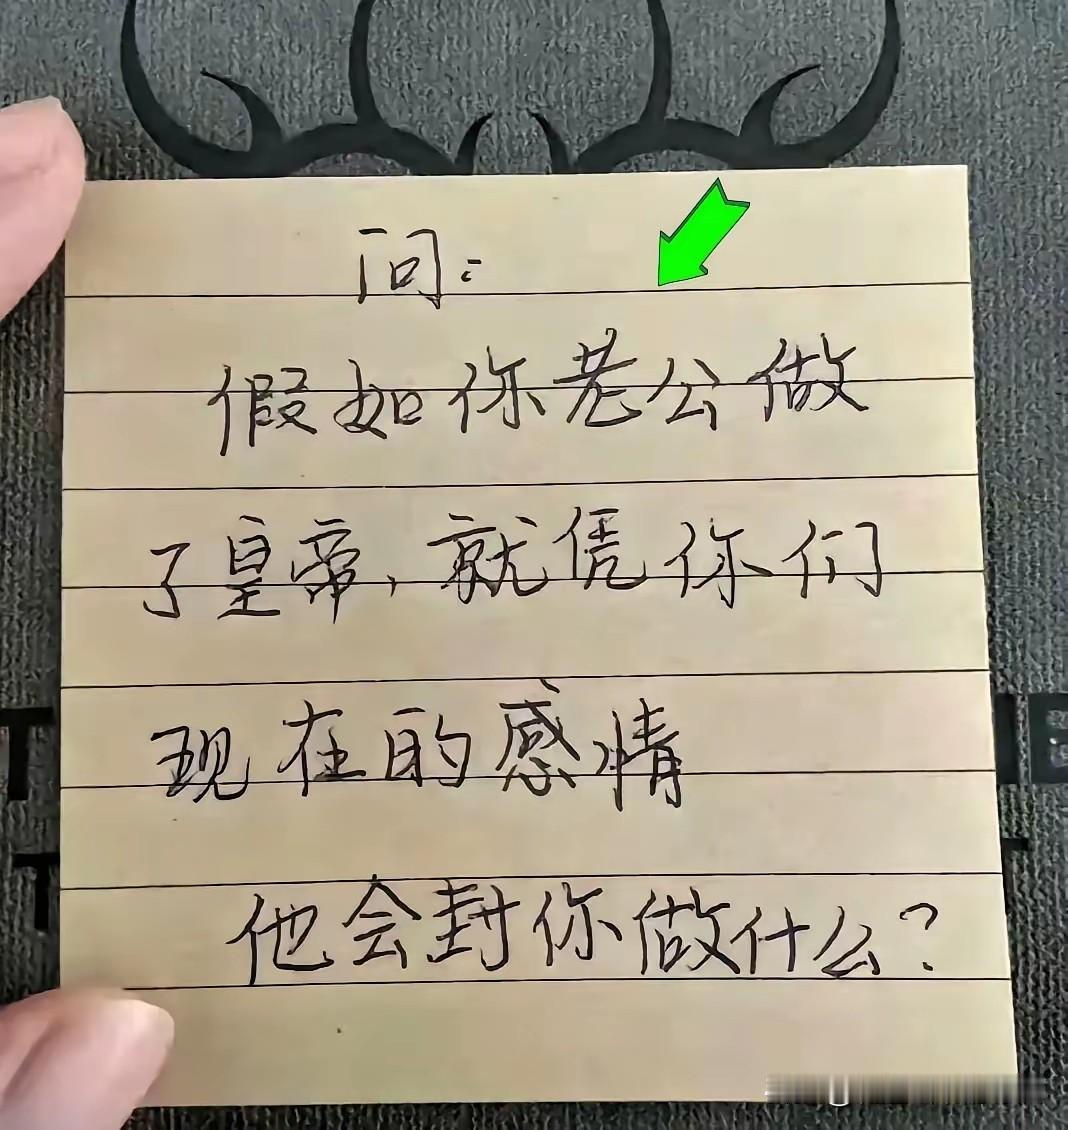 问:
假如你老公做
了皇帝,就凭你们
现在的感情
他会封你做什么?